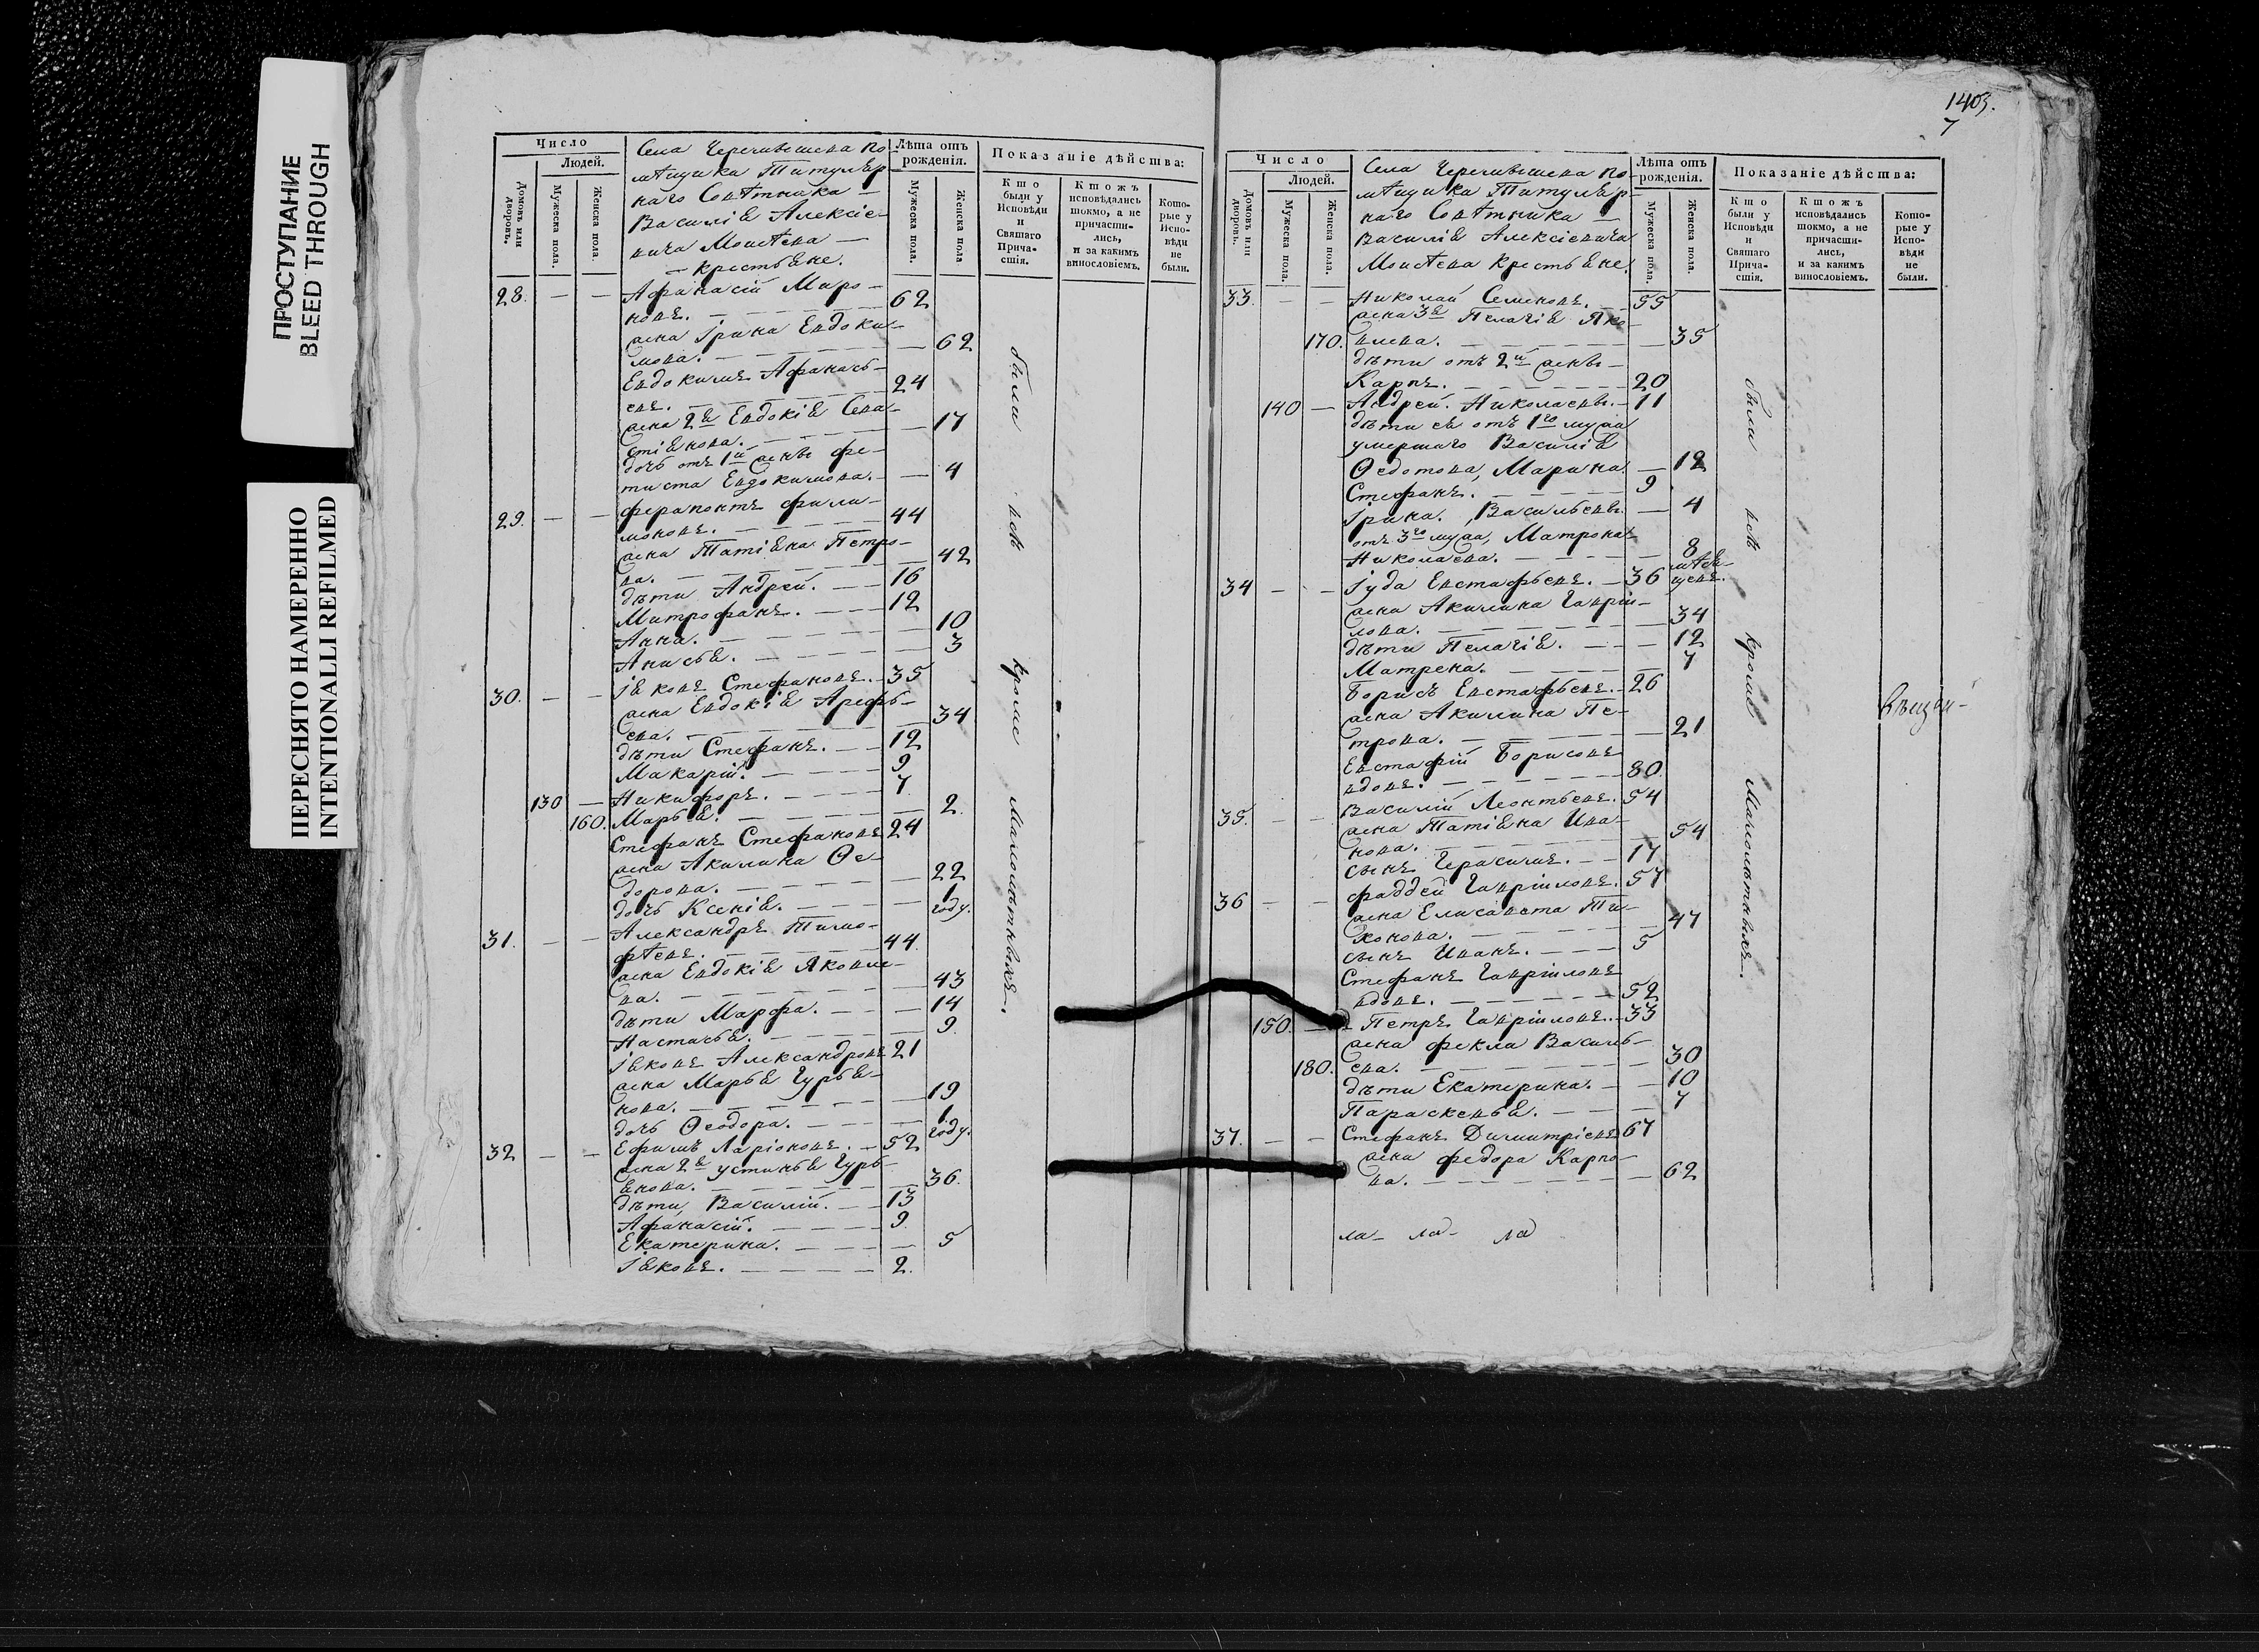 1403.
7
ПРОСТУПАНИЕ
BLEED THROUGH
ПЕРЕСНЯТО НАМЕРЕННО
INTENTIONALLI REFILMED
Число
Людей.
Домовъ или дворовъ.
Мужеска пола.
Женска пола.
Села Черепишева по-
мѣщика Титуляр-
наго Совѣтника —
Василія Алексіе-
вича Моисѣева —
— крестьяне.
Лѣта отъ рожденія.
Мужеска пола.
Женска пола
Показаніе дѣйства:
Кто были у Исповѣди и Святаго Прича-стія.
Ктожъ исповѣдались токмо, а не причасти-лись, и за какимъ винословіемъ.
Кото-рые у Испо-вѣди не были.
28. — — Афанасій Миро-
новъ. — 62
жена Ірина Евдоки-
мова. — 62
Евдокимъ Афанась-
евъ. — 24
жена 2я Евдокія Сева-
стіянова. — 17
дочь отъ 1й жены Фе-
тиста Евдокимова. — 4
29. — — Ферапонтъ Фили-
моновъ. — 44
жена Татіана Петро-
ва. — 42
дѣти Андрей. — 16
Митрофанъ. — 12
Анна. — 10
Анисья. — 3
30. — — Іяковъ Стефановъ. — 35
жена Евдокія Арефь-
ева. — 34
дѣти Стефанъ. — 12
Макарій. — 9
130 — Никифоръ. — 7
160. Марья. — 2.
Стефанъ Стефановъ 24
жена Акилина Ѳе-
дорова. — 22
дочь Ксенія. — 1 году.
31. — — Александръ Тимо-
фѣевъ. — 44.
жена Евдокія Яковле-
ва. — 43
дѣти Марфа. — 14
Настасья. — 9.
Іяковъ Александровъ 21
жена Марья Гурья-
нова. — 19
дочь Ѳеодора. — 1. году.
32 — — Ефимъ Ларіоновъ. — 52
жена 2я Устинья Гурь-
янова. — 36.
дѣти, Василій. — 13
Афанасій. — 9
Екатерина. — 5
Іяковъ. — 2.
были всѣ кроме Малолѣтныхъ.
Число
Людей.
Домовъ или дворовъ.
Мужеска пола.
Женска пола.
Села Черепишева по-
мѣщика Титуляр-
наго Совѣтника —
Василія Алексіевича
Моисѣева крестьяне.
Лѣта отъ рожденія.
Мужеска пола.
Женска пола.
Показаніе дѣйства:
Кто были у Исповѣди и Святаго Прича-стія.
Ктожъ исповѣдались токмо, а не причасти-лись, и за какимъ винословіемъ.
Кото-рые у Испо-вѣди не были.
33. — — Николай Семеновъ. — 55
жена 3я Пелагія Яко-
170. влева. — 35
дѣти отъ 2й жены —
Карпъ. — 20
140 — Андрей. Николаевы. — 11
дѣти ея отъ 1го мужа
умершаго Василія
Ѳедотова, Марина — 12
Стефанъ. — 9
Ірина. Васильевы. — 4
отъ 3го мужа, Матрона
Николаева. — 8 мѣся-цевъ.
34 — — Іуда Евстафьевъ. — 36
жена Акилина Гаврии-
лова. — 34
дѣти Пелагія. — 12
Матрена. — 7
Борисъ Евстафьевъ. — 26
жена Акилина Пе-
трова. — 21
Евстафій Борисовъ
вдовъ. — 80
35. — — Василій Леонтьевъ. 54
жена Татіана Ива-
нова. — 54
сынъ Герасимъ. — 17
36 — — Фаддей Гавріиловъ. 57
жена Елисавета Ти-
хонова. — 47
сынъ Иванъ. — 5
Стефанъ Гавріиловъ
вдовъ. — 52
150. — Петръ Гавріиловъ. — 33
жена Фекла Василь-
180. ева. — 30
дѣти Екатерина. — 10
Параскевья. — 7
37. — — Стефанъ Димитріевъ 67
жена Федора Карпо-
ва. — 62
ла- ла- ла
были всѣ кромѣ Малолѣтныхъ.